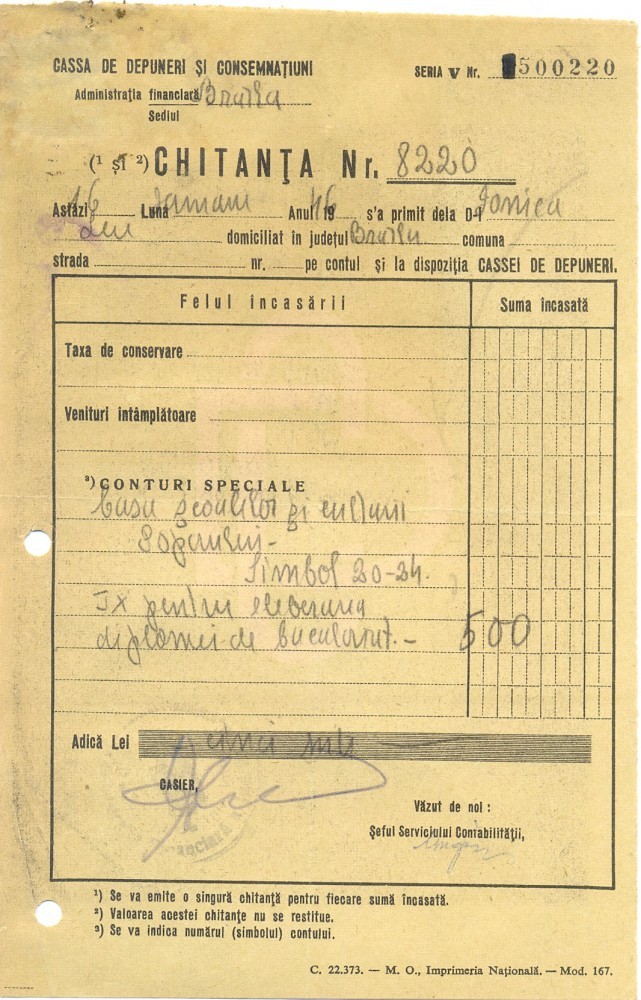 CASSA DE DEPUNERI ȘI CONSEMNAȚIUNI
SERIA V Nr. 500220
Administrația financiară Braila
Sediul
(¹ și ²) CHITANȚA Nr. 8220
Astăzi 16 Luna Ianuarie Anul 1946 s'a primit dela D-l Ionica
domiciliat în județul Braila comuna
strada nr. pe contul și la dispoziția CASSEI DE DEPUNERI.
Felul încasării Suma încasată
Taxa de conservare
Venituri întâmplătoare
³) CONTURI SPECIALE
Casa școalelor și culturii
Poporului -
Simbol 20-24.
IX pentru eliberarea
diplomei de bacalaureat. - 500
Adică Lei cinci sute
CASIER,
Văzut de noi :
Șeful Serviciului Contabilității,
¹) Se va emite o singură chitanță pentru fiecare sumă încasată.
²) Valoarea acestei chitanțe nu se restitue.
³) Se va indica numărul (simbolul) contului.
C. 22.373. — M. O., Imprimeria Națională. — Mod. 167.